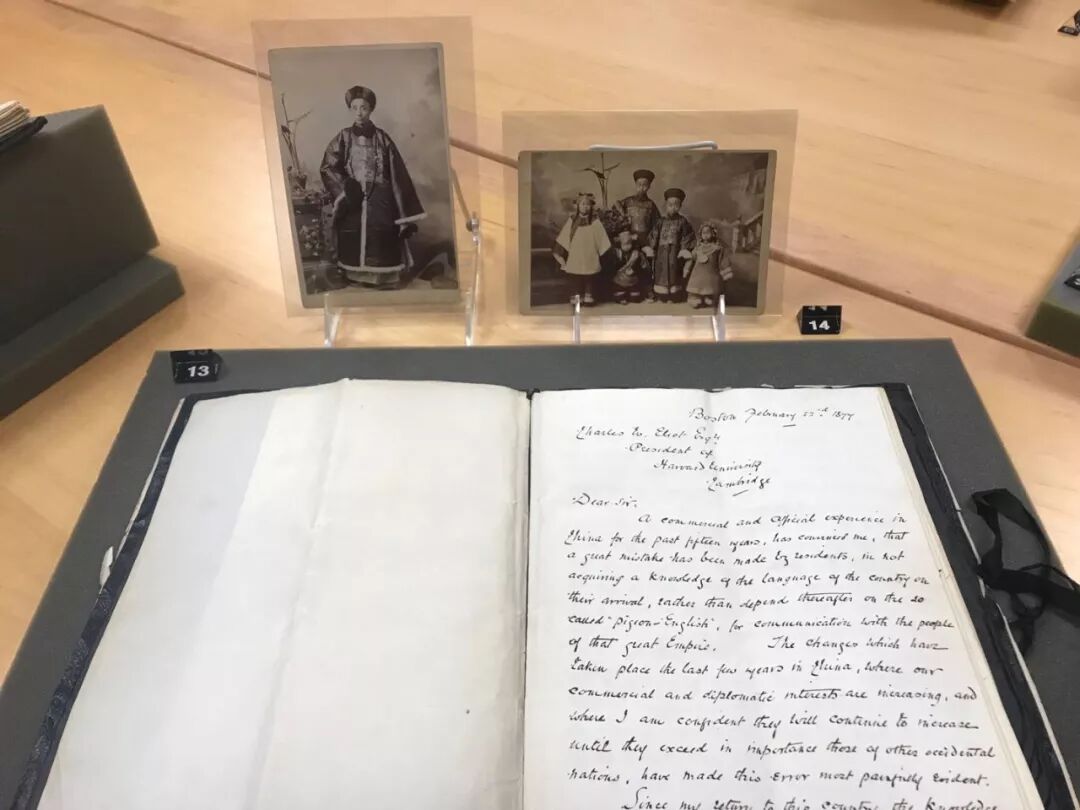 14
13
Boston February 22nd 1877
Charles W. Eliot Esqr
President of
Harvard University
Cambridge
Dear Sir,
A commercial and official experience in
China for the past fifteen years, has convinced me, that
a great mistake has been made by residents, in not
acquiring a knowledge of the language of the country on
their arrival, rather than depend thereafter on the so
called "pigeon-English", for communication with the people
of that great Empire. The changes which have
taken place the last few years in China, where our
commercial and diplomatic interests are increasing, and
where I am confident they will continue to increase
until they exceed in importance those of other occidental
nations, have made this error most painfully evident.
Since my return to this country, the knowledge